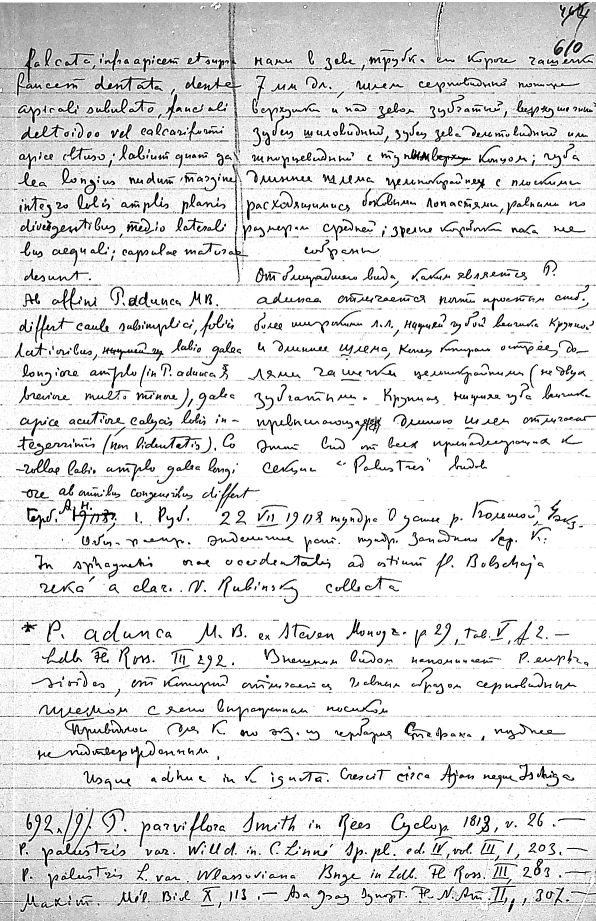 610
falcata, infra apicem et supra
faucem dentata, dente
apicali subulato, fauciali
deltoideo vel calcariformi
apice obtuso; labium quam ga
lea longius nudum margine
integro lobis amplis planis
divergentibus, medio laterali
bus aequali; capsulae maturae
desunt.
Ab affini P. adunca MB.
differt caule subimplici, foliis
latioribus, labio galea
longiore amplo (in P. adunca
breviore multo minore), galea
apice acutiore, calycis lobis in-
tegerrimis (non bidentatis). Co
rollae labio amplo galea longi
ore ab omnibus congeneribus differt
нами в зеве, трубка его короче чашечки
7 мм дл., шлем серповидный пониже
верхушки и над зевом зубчатый, верхушечный
зубец шиловидный, зубец зева дельтовидный или
шпорцевидный с тупым концом; губа
длиннее шлема цельнокрайняя с плоскими
расходящимися боковыми лопастями, равными по
размерам средней; зрелые коробочки пока не
собраны
От ближайшего вида, каким является P.
adunca отличается почти простым стеб.,
более широкими л.л., нижней губой венчика крупной
и длиннее шлема, конец которого острее, до-
лями чашечки цельнокрайними (не двух
зубчатыми. Крупная нижняя губа венчика
превышающая длиною шлем отличает
этот вид от всех принадлежащих к
секции "Palustres" видов
Герб. 1. Руб. 22 VII 1908 тундра у устья р. Большой,
эндемичн. раст. тундр Западного бер. К.
In sphagnetis orae occidentalis ad ostium fl. Bolschaja
reka a clar. V. Rubinsky collecta
* P. adunca M. B. ex Steven Monogr. p 29, tab. V, f 2. —
Ldb. Fl. Ross. III 292. Внешним видом напоминает P. euphra
sioides, от которой отличается главным образом серповидным
шлемом с ясно выраженным носиком
Приводился для К по экз. из гербария Стефана, позднее
не подтвержденным.
Usque adhuc in K ignota. Crescit circa Ajan neque Ishiga
692. /9/. P. parviflora Smith in Rees Cyclop 1813, v. 26. —
P. palustris var. Willd. in C. Linné Sp. pl. ed. IV, vol. III, 1, 203. —
P. palustris L. var. Wlassoviana Bnge in Ldb. Fl. Ross. III, 283. —
Maxim. Mél. Biol X, 113. — Asa Gray Synopt. Fl. N. Am. II, 1, 307. —